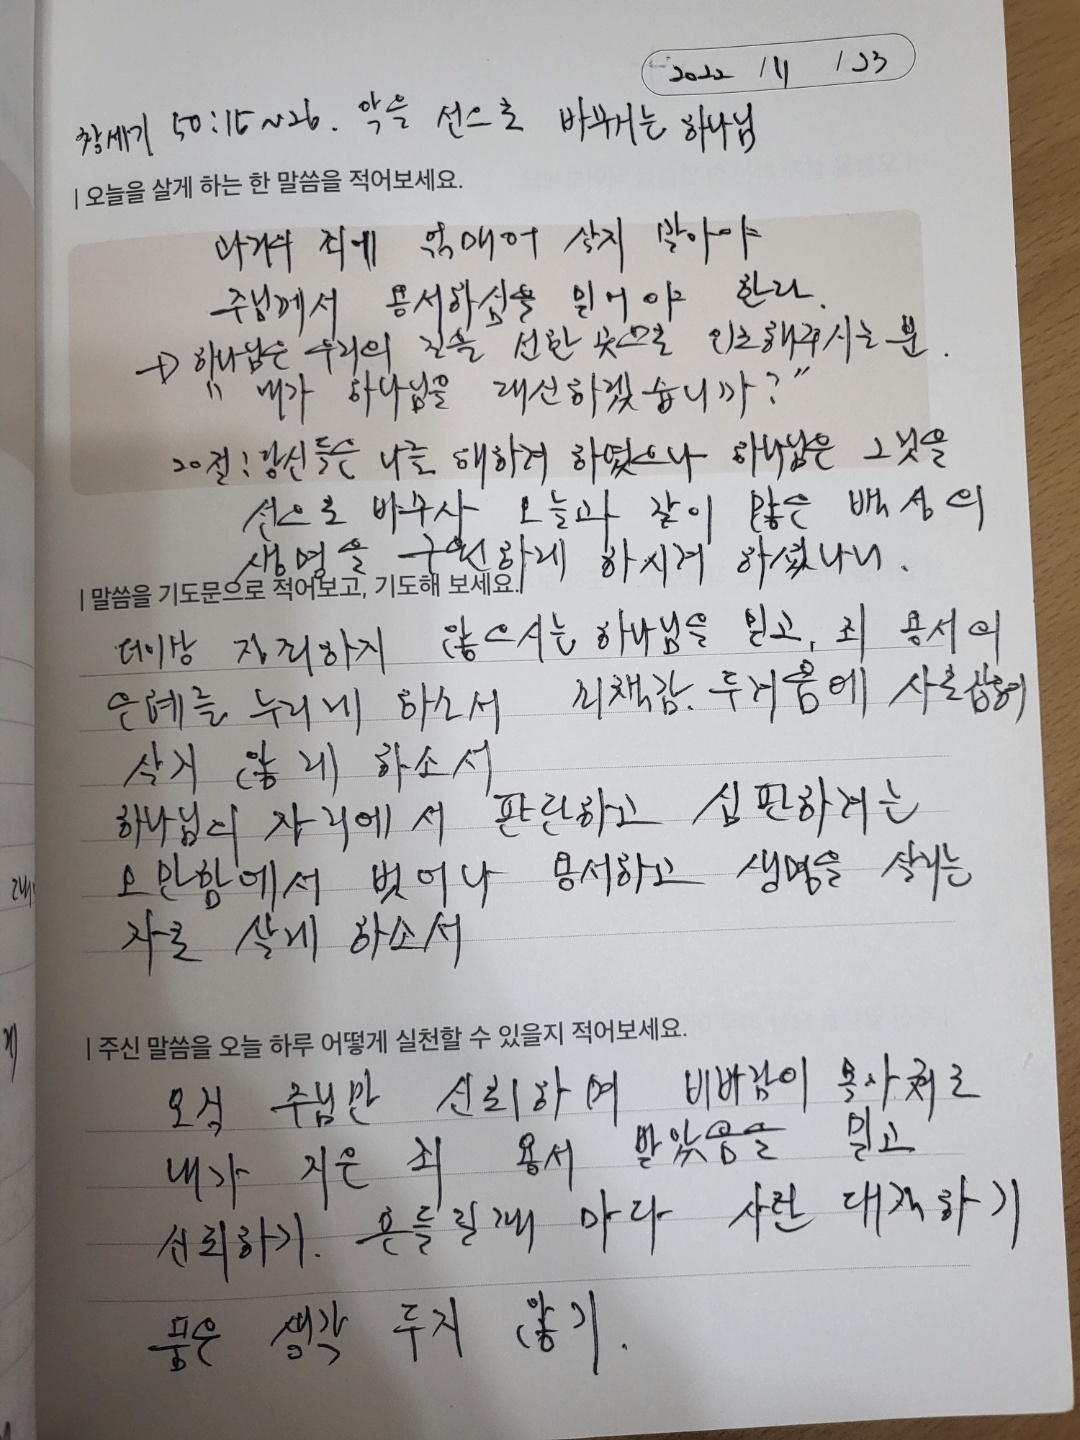 2022 / 11 / 23
창세기 50:15~26. 악을 선으로 바꾸시는 하나님
| 오늘을 살게 하는 한 말씀을 적어보세요.
과거의 죄에 얽매여 살지 말아야
주님께서 용서하심을 믿어야 한다.
→ 하나님은 우리의 길을 선한 곳으로 인도해주시는 분.
" 내가 하나님을 대신하겠습니까? "
20절: 당신들은 나를 해하려 하였으나 하나님은 그것을
선으로 바꾸사 오늘과 같이 많은 백성의
생명을 구원하게 하시려 하셨나니.
| 말씀을 기도문으로 적어보고, 기도해 보세요.
더이상 하지 않으시는 하나님을 믿고, 죄 용서의
은혜를 누리게 하소서 죄책감. 두려움에 사로잡혀
살지 않게 하소서
하나님의 자리에서 판단하고 심판하려는
오만함에서 벗어나 용서하고 생명을 살리는
자로 살게 하소서
| 주신 말씀을 오늘 하루 어떻게 실천할 수 있을지 적어보세요.
오직 주님만 신뢰하며 비바람이
내가 지은 죄 용서 받았음을 믿고
신뢰하기. 흔들릴때 마다 사탄 대적하기
품은 생각 두지 않기.